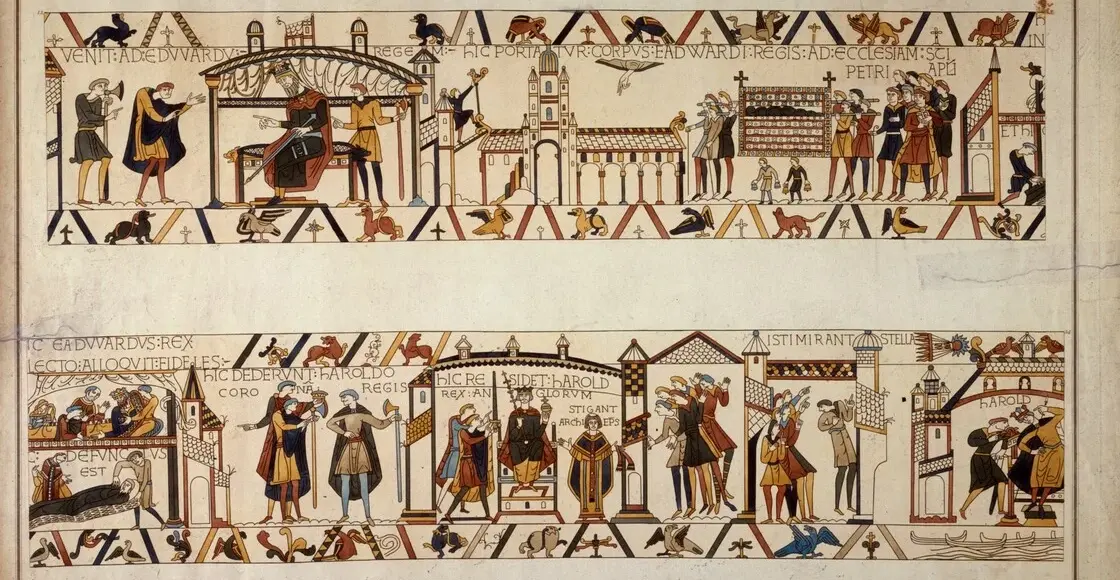 VENIT:AD:EDVVARDV: REGEM:- hIC PORTATVR:CORPVS:EADWARDI:REGIS:AD:ECCLESIAM:SCI
PETRI APLI
IN
ET hI
IC EADVVARDVS:REX
ECTO:ALLOQVIT:FIDELES:-
DEFVNCTVS
EST
hIC DEDERVNT:hAROLDO
CORO NA REGIS
hIC RE SIDET:hAROLD
REX:AN GLORVM
STIGANT
ARChI EPS
ISTI MIRANT STELLA
hAROLD